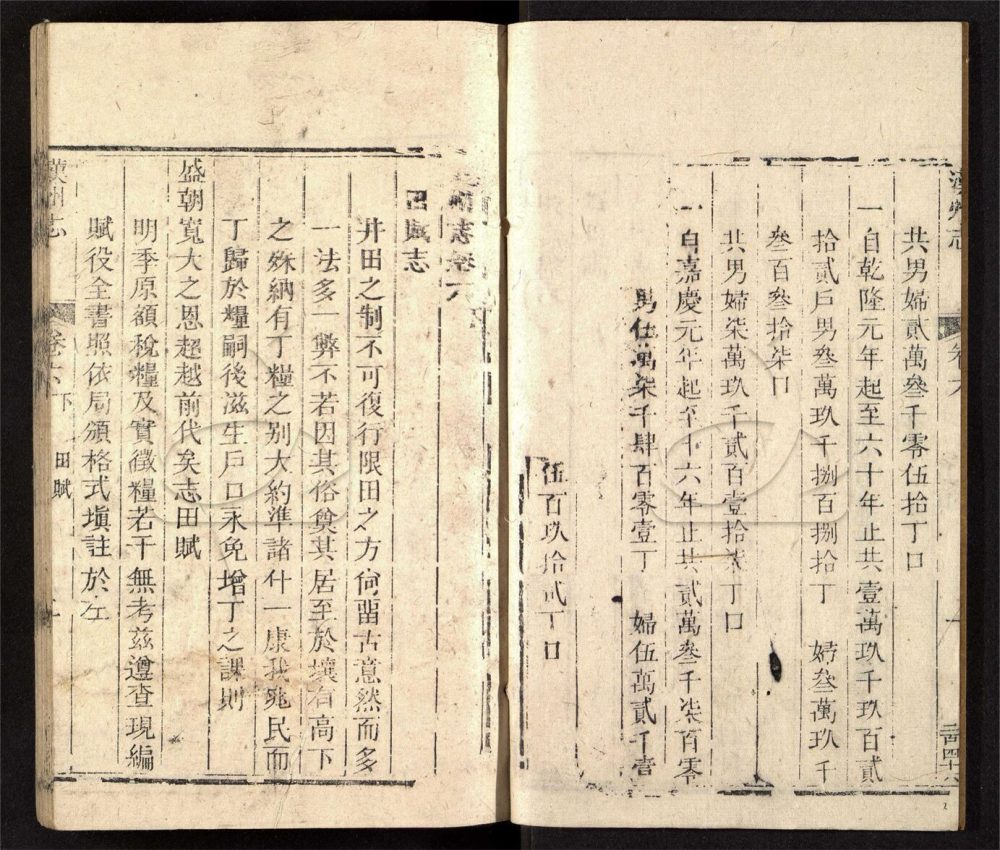 漢州志
卷六
共男婦貳萬叁千零伍拾丁口
一自乾隆元年起至六十年止共壹萬玖千玖百貳
拾貳戶男叁萬玖千捌百捌拾丁　婦叁萬玖千
叁百叁拾柒口
共男婦柒萬玖千貳百壹拾柒丁口
一自嘉慶元年起至十六年止共貳萬叁千柒百零
男伍萬柒千肆百零壹丁　婦伍萬貳千壹
伍百玖拾貳丁口
漢州志卷六
田賦志
井田之制不可復行限田之方尚畱古意然而多
一法多一獘不若因其俗奠其居至於壤有高下
之殊納有丁糧之别大約準諸什一康我兆民而
丁歸於糧嗣後滋生戶口永免增丁之課則
盛朝寬大之恩超越前代矣志田賦
明季原額稅糧及實徵糧若干無考兹遵查現編
賦役全書照依局頒格式塡註於左
漢州志
卷六下
田賦